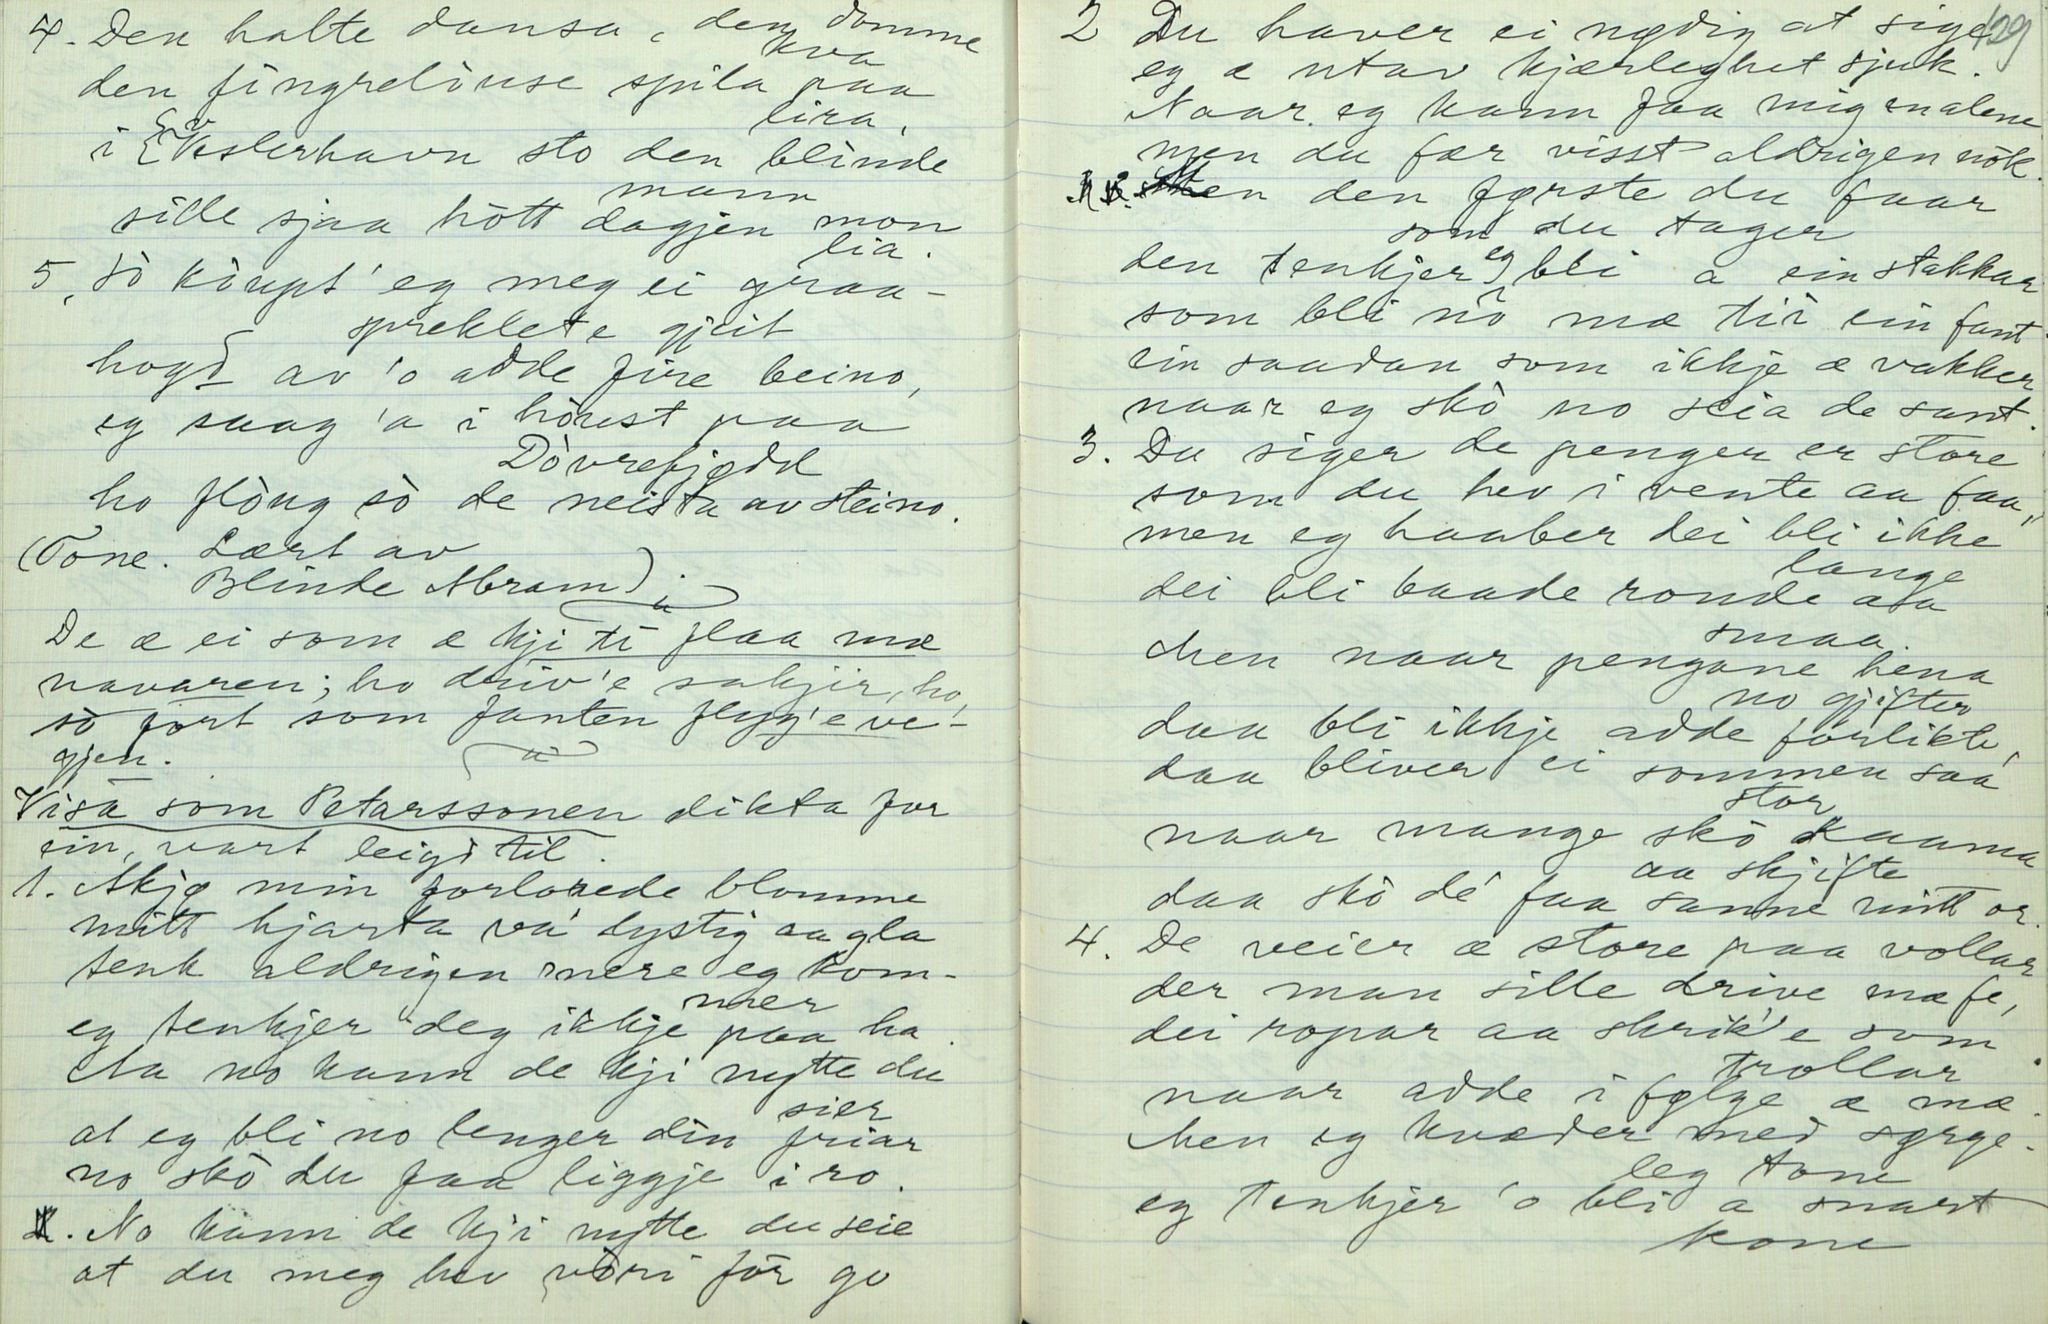 4. Den halte dansa, den domme
kva
den fingrelause spila paa
lira,
i Vesterhavn sto den blinde
mann
sille sjaa hòtt dagjen mon
lia.
5. Sò kòupt' eg meg ei graa-
spreklete gjeit
hogd av 'o adde fire beino,
eg saag 'a i hòust paa
Dòvrefjødd
ho flòug sò de neista av steino.
(Tone. Lært av
Blinde Abram).
De æ ei som æ kji ti flaa mæ
navaren; ho driv'e sakjir, ho,
sò fort som fanten flyg'e ve-
gjen.
Visa som Petarssonen dikta for
ein, vart leigd til.
1. Akjø min forlorede blomme
mitt hjarta va' lystig aa gla
tenk aldrigen mere eg kom-
mer
eg tenkjer deg ikkje paa ha.
Aa no kann de kji nytte du
sier
at eg bli no lenger din friar
no skò du faa liggje i ro.
No kann de kji nytte du seie
at du meg hev vòri fòr go
129
2 Du haver ei nødig at sige
eg æ utav kjærleghet sjuk.
Naar eg kann faa mig malene
men du fær visst aldrigen nòk.
Men den første du faar
som du tager
den tenkjer eg bli a ein stakkar
som bli nò mæ tìì ein fant
ein saadan som ikkje æ vakker
naar eg skò no seia de sant.
3. Du siger de penger er store
som du hev i vente aa faa,
men eg haaber dei bli ikke
lange
dei bli baade ronde aa
smaa.
Men naar pengane hena
no gjifter
daa bli ikkje adde forlikte,
daa bliver ei sommen saa
stor
naar mange skò kaama
aa skjifte
daa skò dé faa sanne mitt or.
4. De veier æ store paa vollar
der man sille drive mæ fe,
dei ropar aa skrik'e som
trollar
naar adde i følge æ mæ.
Men eg kvæder med sørge-
leg tone
eg tenkjer 'o bli a snart
kone